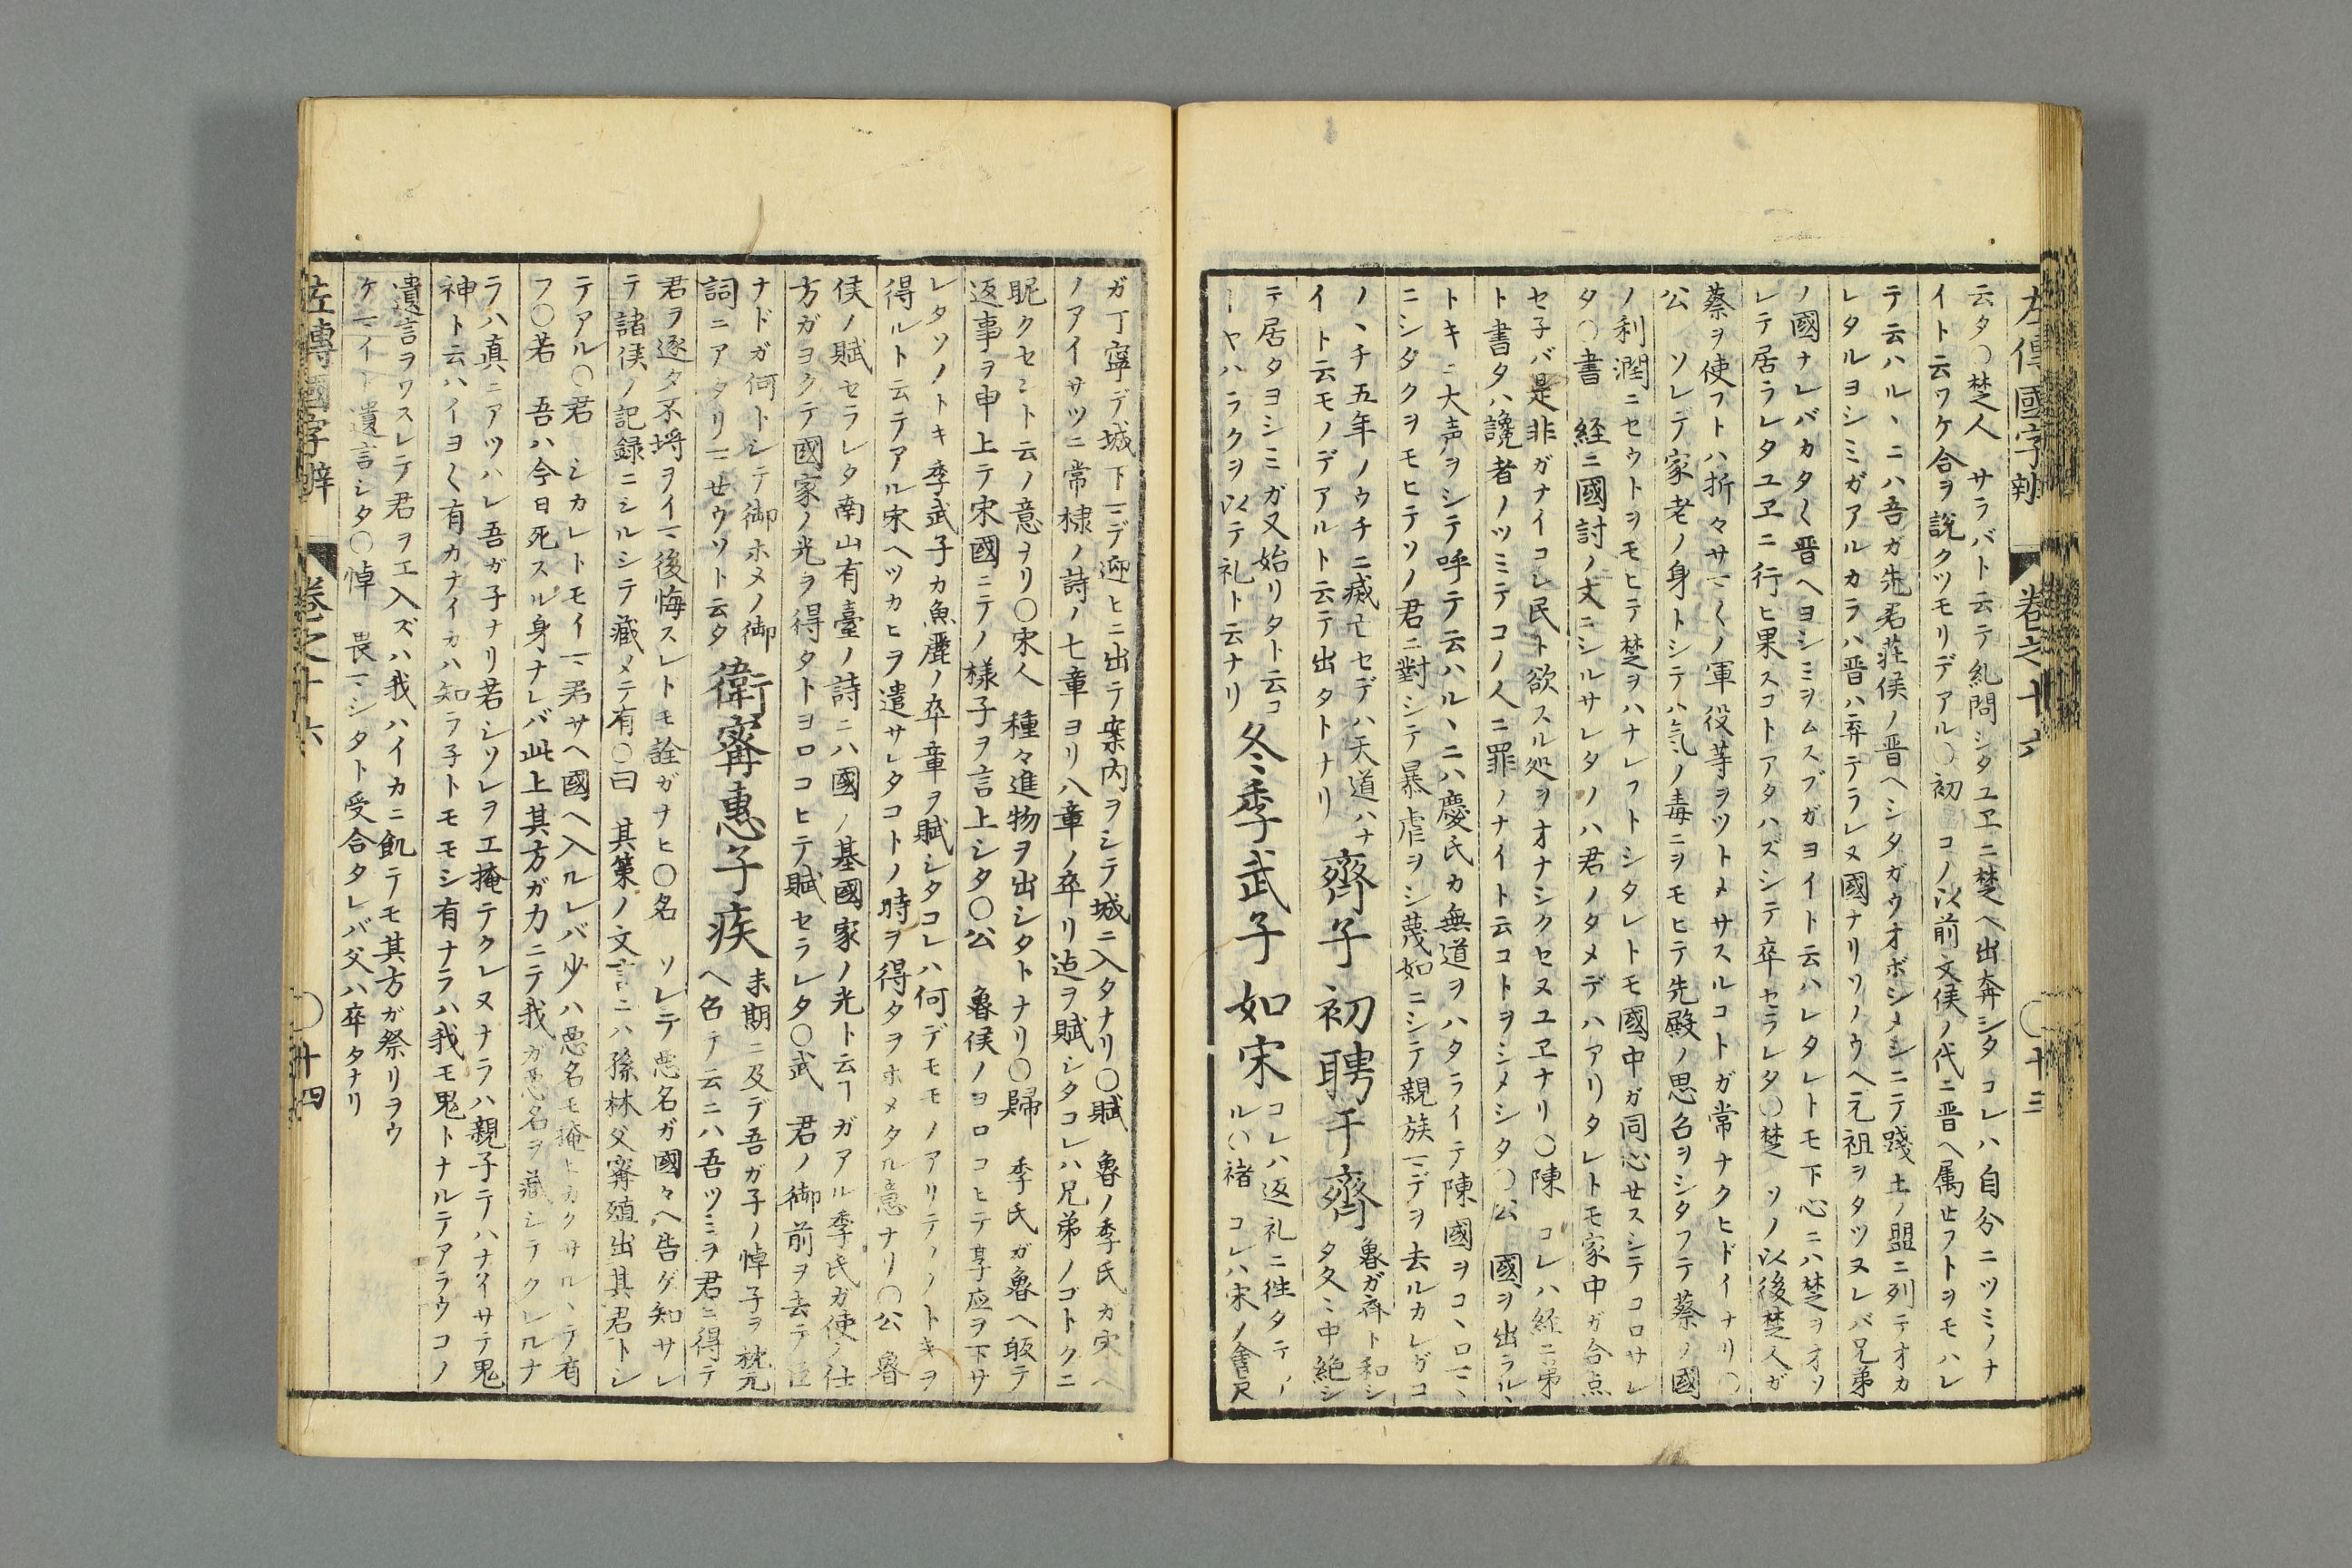 左傳國字辨 卷之十六 〇十三
云タ〇楚人 サラバト云テ糺問シタユヱニ楚ヘ出奔シタコレハ自分ニツミノナ
イト云ワケ合ヲ説クツモリデアル〇初 コノ以前文侯ノ代ニ晋ヘ属セフトヲモハレ
テ云ハル丶ニハ吾ガ先君荘侯ノ晋ヘシタガウオボシメシニテ踐土ノ盟ニ列テオカ
レタルヨシミガアルカラハ晋ハ弃テラレヌ國ナリソノウヘ元祖ヲタツヌレバ兄弟
ノ國ナレバカタ〱晋ヘヨシミヲムスブガヨイト云ハレタレトモ下心ニハ楚ヲオソ
レテ居ラレタユヱニ行ヒ果スコトアタハズシテ卒セラレタ〇楚 ソノ以後楚人ガ
蔡ヲ使フトハ折々サマ〱ノ軍役等ヲツトメサスルコトガ常ナクヒドイナリ〇
公 ソレデ家老ノ身トシテハ氣ノ毒ニヲモヒテ先殿ノ思召ヲシタフテ蔡ノ國
ノ利潤ニセウトヲモヒテ楚ヲハナレフトシタレトモ國中ガ同心セスシテコロサレ
タ〇書 経ニ國討ノ丈ニシルサレタノハ君ノタメデハアリタレトモ家中ガ合点
セ子バ是非ガナイコレ民ト欲スル処ヲオナシクセヌユヱナリ〇陳 コレハ経ニ弟
ト書タハ讒者ノツミテコノ人ニ罪ノナイト云コトヲシメシタ〇公 國ヲ出ラル丶
トキニ大声ヲシテ呼テ云ハル丶ニハ慶氏カ無道ヲハタライテ陳國ヲコ丶ロマ丶
ニシタクヲモヒテソノ君ニ對シテ暴虐ヲシ蔑如ニシテ親族マデヲ去ルカレガコ
ノ丶チ五年ノウチニ滅亡セデハ天道ハナ
イト云モノデアルト云テ出タトナリ
齊子初聘于齊
魯ガ斉ト和シ
タ久ミ中絶シ
テ居タヨシミガ又始リタト云コ
ーヤハラクヲ以テ礼ト云ナリ
冬季武子如宋
コレハ返礼ニ徃タテノ
ル〇禇 コレハ宋ノ會尺
ガ丁寧デ城下マデ迎ヒニ出テ案内ヲシテ城ニ入タナリ〇賦 魯ノ季氏カ宋ヘ
ノアイサツニ常棣ノ詩ノ七章ヨリ八章ノ卒リ迠ヲ賦シタコレハ兄弟ノゴトクニ
昵クセント云ノ意ヲリ〇宋人 種々進物ヲ出シタトナリ〇歸 季氏ガ魯ヘ皈テ
返事ヲ申上テ宋國ニテノ様子ヲ言上シタ〇公 魯侯ノヨロコヒテ享应ヲ下サ
レタソノトキ季武子カ魚麗ノ卒章ヲ賦シタコレハ何デモモノアリテノトキヲ
得ルト云テアル宋ヘツカヒヲ遣サレタコトノ時ヲ得タヲホメタル意ナリ〇公 魯
侯ノ賦セラレタ南山有臺ノ詩ニハ國ノ基國家ノ光ト云フガアル季氏ガ使ノ仕
方ガヨクテ國家ノ光ヲ得タトヨロコヒテ賦セラレタ〇武 君ノ御前ヲ去テ臣
ナドガ何トシテ御ホメノ御
詞ニアタリマセウソト云タ
衛甯惠子疾
末期ニ及デ吾ガ子ノ悼子ヲ枕元
ヘ名テ云ニハ吾ツミヲ君ニ得テ
君ヲ逐タ不埒ヲイマ後悔スレトモ詮ガナヒ〇名 ソレテ悪名ガ國々ヘ告ゲ知サレ
テ諸侯ノ記録ニシルシテ藏メテ有〇曰 其策ノ文言ニハ孫林父甯殖出其君トシ
テアル〇君 シカレトモイマ君サヘ國ヘ入ルレバ少ハ悪名モ掩ヒカクサル丶テ有
フ〇若 吾ハ今日死スル身ナレバ此上其方ガ力ニテ我ガ悪名ヲ藏シテクレルナ
ラハ真ニアツハレ吾ガ子ナリ若シソレヲエ掩テクレヌナラハ親子テハナイサテ鬼
神ト云ハイヨ〱有カナイカハ知ラ子トモモシ有ナラハ我モ鬼トナルテアラウコノ
遺言ヲワスレテ君ヲエ入ズハ我ハイカニ飢テモ其方ガ祭リヲウ
ケマイト遺言シタ〇悼 畏マシタト受合タレバ父ハ卒タナリ
左傳國字辨 卷之十六 〇十四